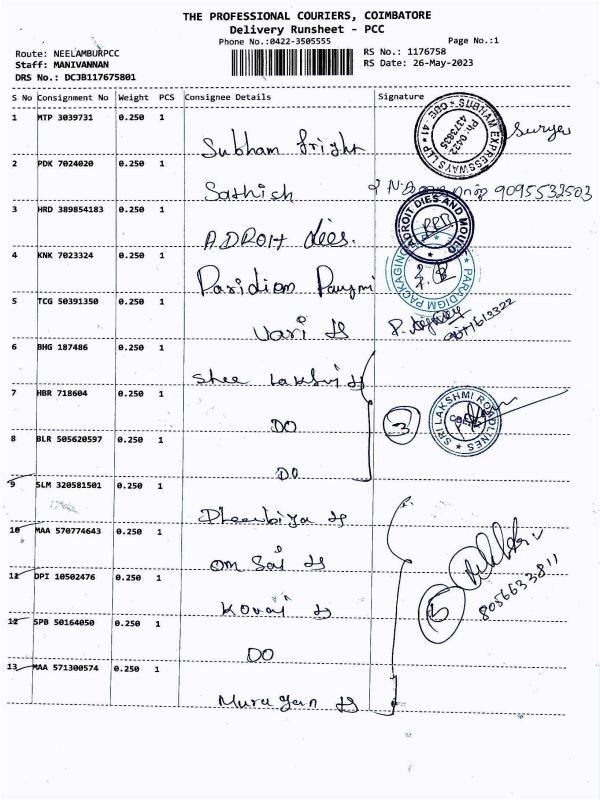 THE PROFESSIONAL COURIERS, COIMBATORE
Delivery Runsheet - PCC
Phone No.:0422-3505555
Page No.:1
Route: NEELAMBURPCC
RS No.: 1176758
Staff: MANIVANNAN
RS Date: 26-May-2023
DRS No.: DCJB117675801
S No Consignment No Weight PCS Consignee Details Signature
1 MTP 3039731 0.250 1
Subham fright
SHUBHAM EXPRESSWAYS LLP
Ph: 0422
4373835
Surya
2 PDK 7024020 0.250 1
Sathish
9095532503
3 HRD 389854183 0.250 1
ADROIT dies.
ADROIT DIES AND MOULD
4 KNK 7023324 0.250 1
PARADIGM PACKAGING
5 TCG 50391350 0.250 1
Vari
6 BHG 187486 0.250 1
Shee
7 HBR 718604 0.250 1
DO
3
SRI LAKSHMI ROADLINES
8 BLR 505620597 0.250 1
DO
9 SLM 320581501 0.250 1
10 MAA 570774643 0.250 1
Om Sai
8056633811
11 DPI 10502476 0.250 1
Kovai
5
12 SPB 50164050 0.250 1
DO
13 MAA 571300574 0.250 1
Murugan